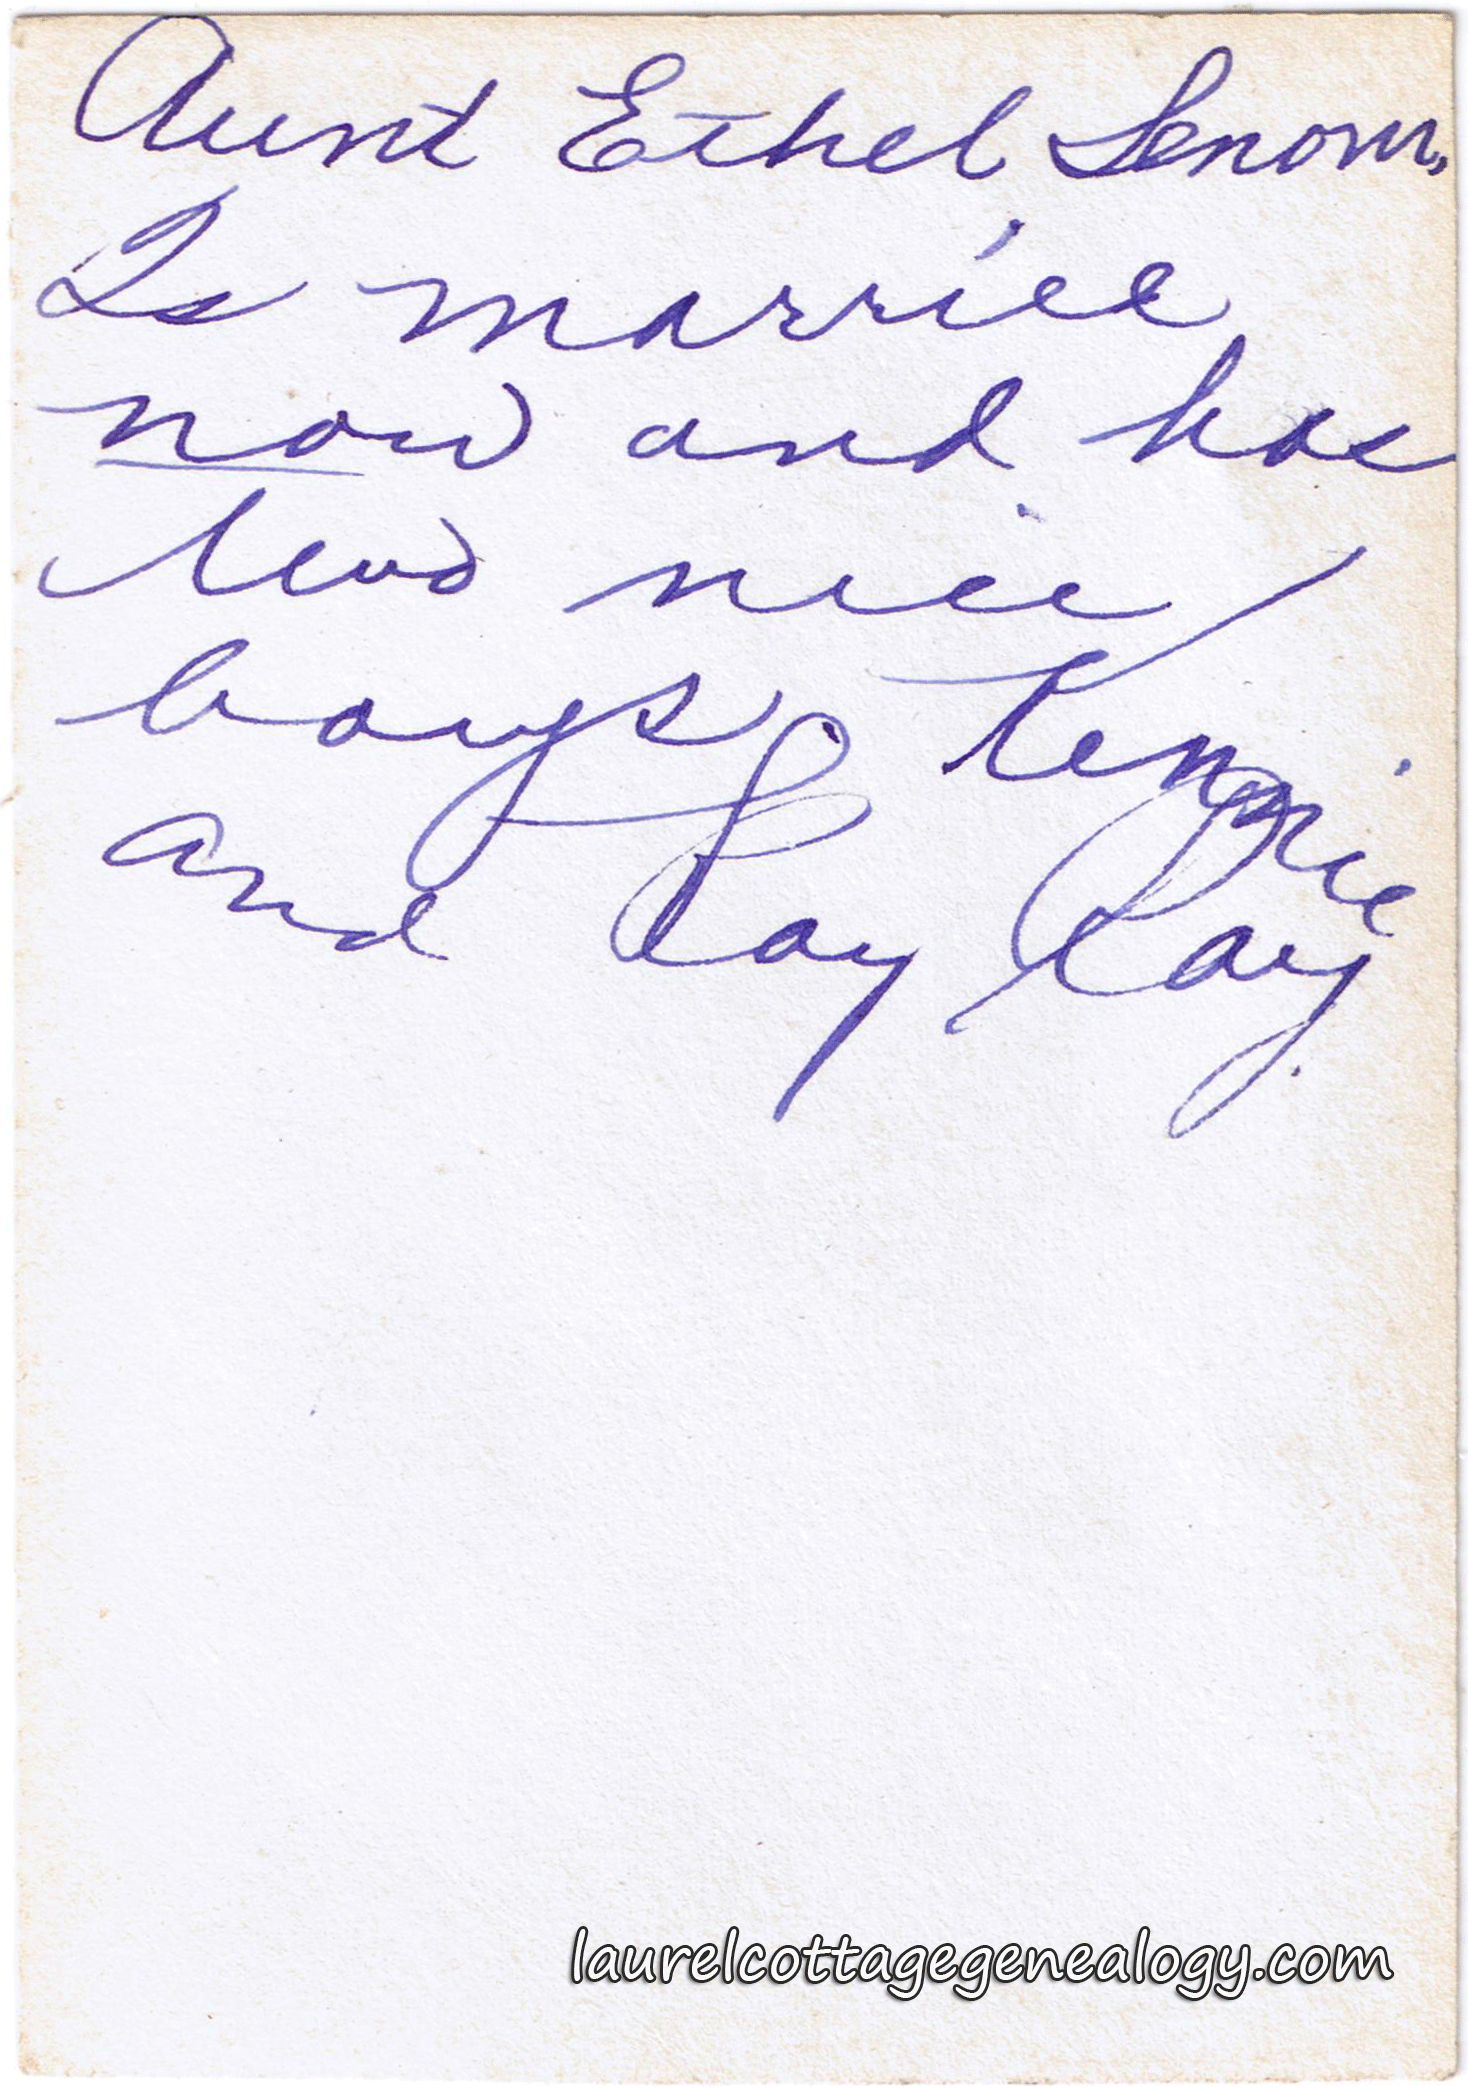 Aunt Ethel
Is marriee
now and has
two nice
boys Kennie
and Ray
laurelcottagegenealogy.com